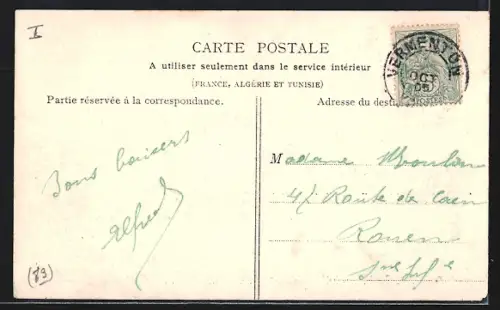 I
CARTE POSTALE
A utiliser seulement dans le service intérieur
(FRANCE, ALGÉRIE ET TUNISIE)
Partie réservée à la correspondance.
Adresse du dest
VERMENTON
OCT
05
Bons baisers
Alfred
Madame Moulin
41 Route de Caen
Rouen
Sne Infe
(89)